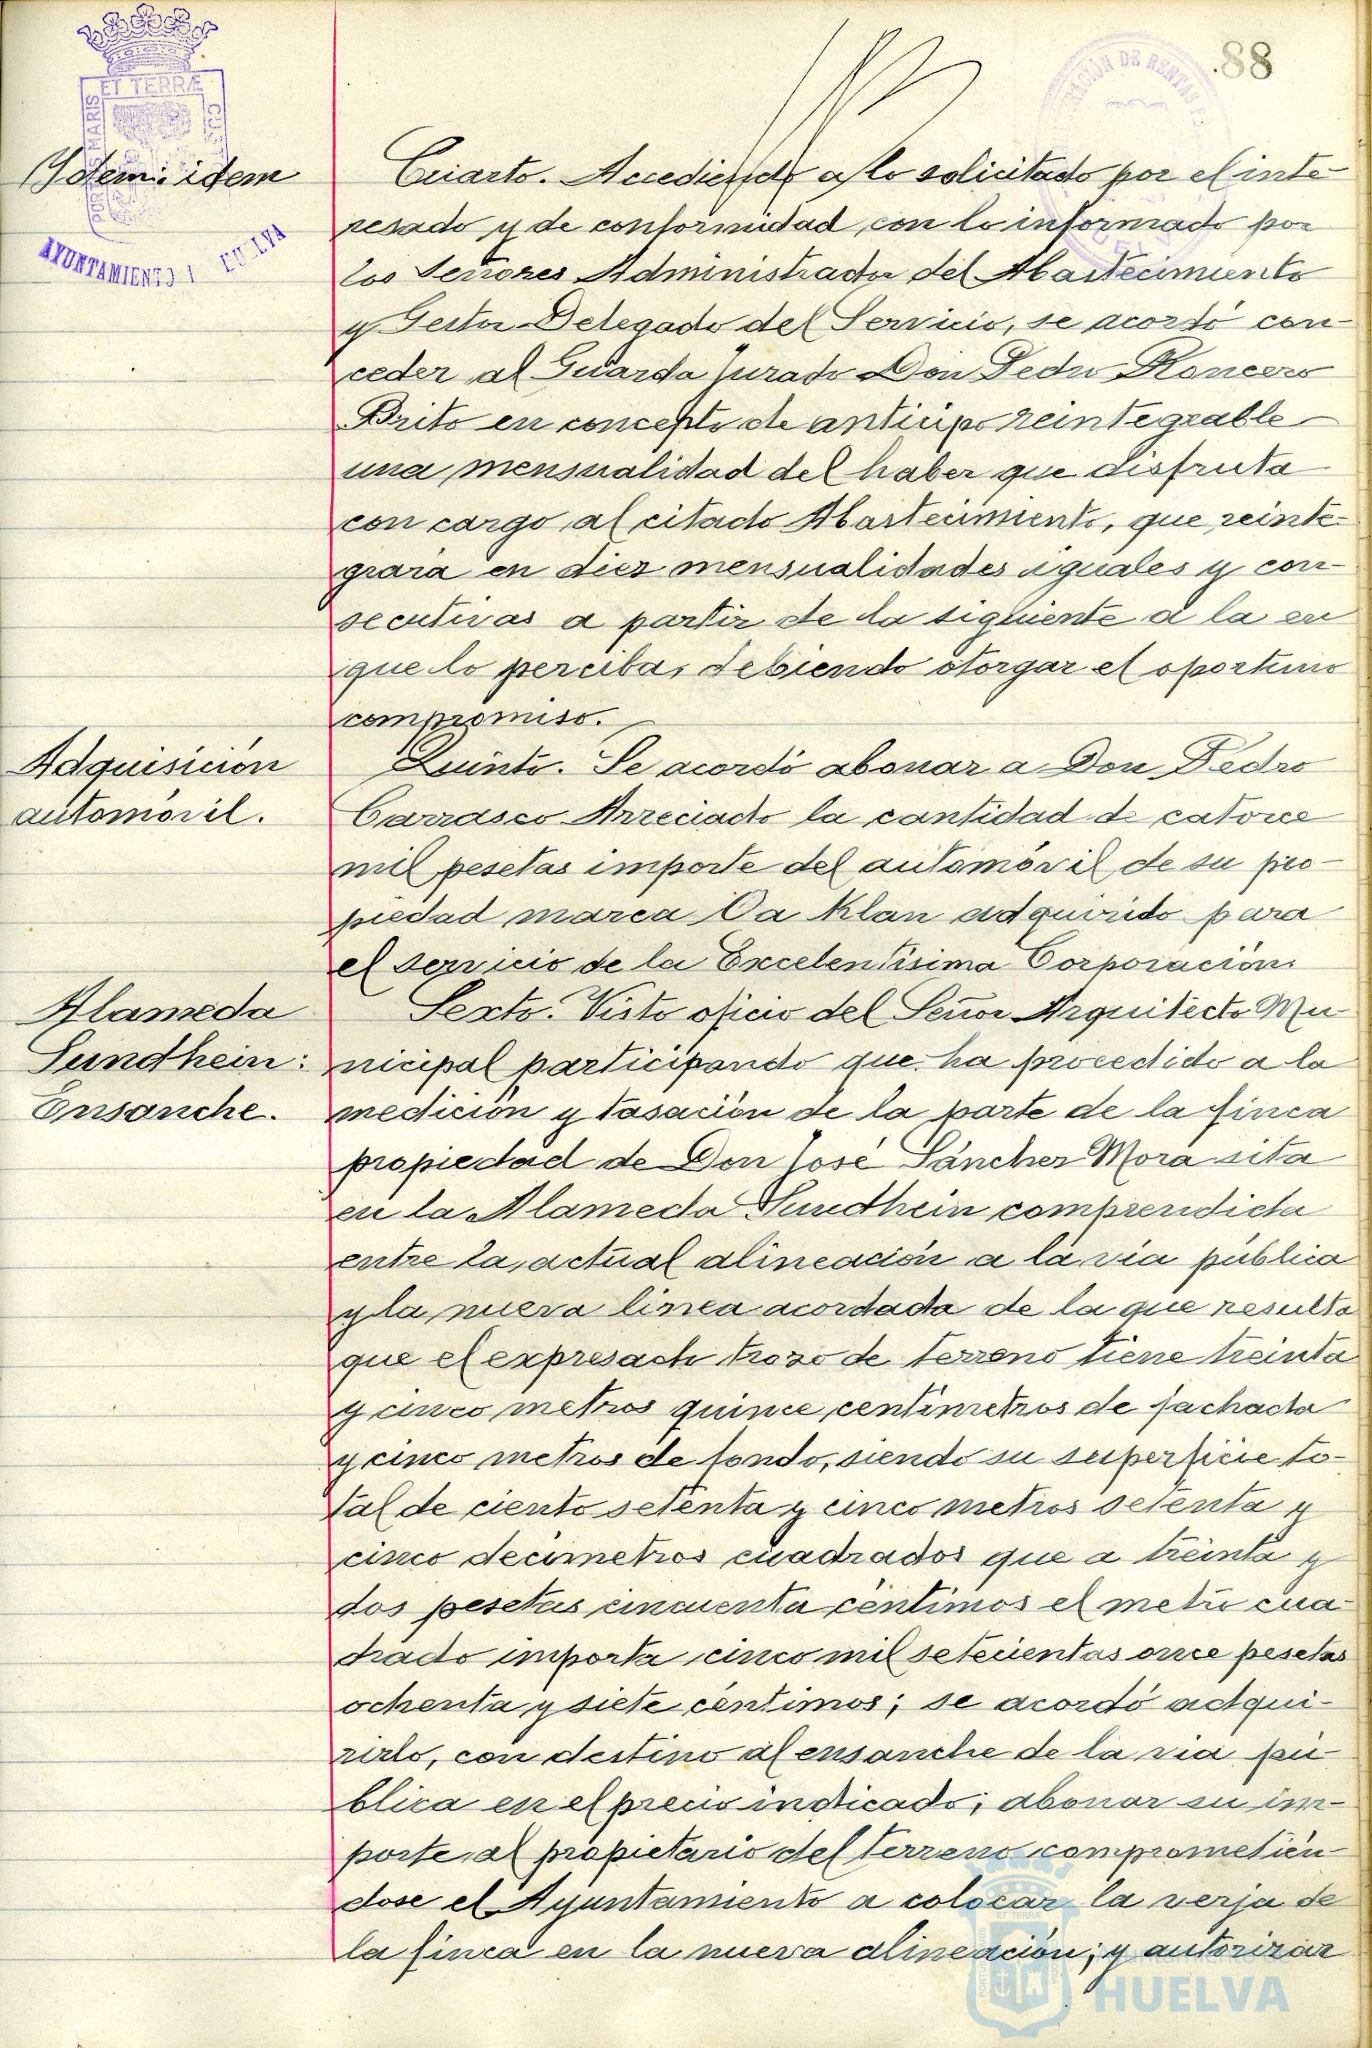 88
ET TERRÆ
PORTUS MARIS
CUSTODIA
AYUNTAMIENTO
HUELVA
ACIÓN DE RENTAS
Ydem: idem
Cuarto. Accediendo a lo solicitado por el inte-
resado y de conformidad con lo informado por
los Señores Administrador del Abastecimiento
y Gestor Delegado del Servicio, se acordó con-
ceder al Guarda Jurado Don Pedro Roncero
Brito en concepto de anticipo reintegrable
una mensualidad del haber que disfruta
con cargo al citado Abastecimiento, que reinte-
grará en diez mensualidades iguales y con-
secutivas a partir de la siguiente a la en
que lo perciba, debiendo otorgar el oportuno
compromiso.
Adquisición
automóvil.
Quinto. Se acordó abonar a Don Pedro
Carrasco Arreciado la cantidad de catorce
mil pesetas importe del automóvil de su pro-
piedad marca Oa Klan adquirido para
el servicio de la Excelentísima Corporación.
Alameda
Sundhein:
Ensanche.
Sexto. Visto oficio del Señor Arquitecto Mu-
nicipal participando que ha procedido a la
medición y tasación de la parte de la finca
propiedad de Don José Sánchez Mora sita
en la Alameda Sundhein comprendida
entre la actual alineación a la vía pública
y la nueva línea acordada de la que resulta
que el expresado trozo de terreno tiene treinta
y cinco metros quince centímetros de fachada
y cinco metros de fondo, siendo su superficie to-
tal de ciento setenta y cinco metros setenta y
cinco decímetros cuadrados que a treinta y
dos pesetas cincuenta céntimos el metro cua-
drado importa cinco mil setecientas once pesetas
ochenta y siete céntimos; se acordó adqui-
rirlo, con destino al ensanche de la vía pú-
blica en el precio indicado; abonar su im-
porte al propietario del terreno comprometién-
dose el Ayuntamiento a colocar la verja de
la finca en la nueva alineación; y autorizar
Ayuntamiento de
HUELVA